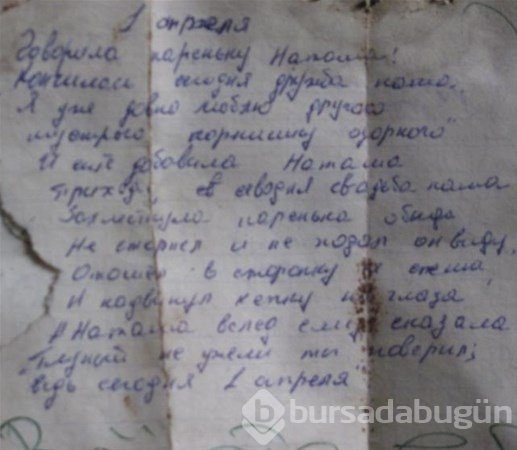 1 апреля
Говорила пареньку Наташа!
Кончилась сегодня дружба наша.
Я уже давно люблю другого
шустрого парнишку озорного"
И ещё добавила Наташа
Приходи, сегодня свадьба наша
Захлестнула паренька обида
Не стерпел и не подал он виду,
Отошёл в сторонку
И надвинул кепку на глаза
А Наташа вслед ему сказала
"Глупый не ужели ты поверил;
ведь сегодня 1 апреля
b bursadabugün